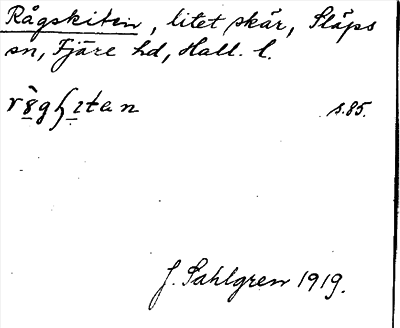 Rågskiten, litet skär, Släps
sn, Fjäre hd, Hall. l.
s. 85.
J. Sahlgren 1919.